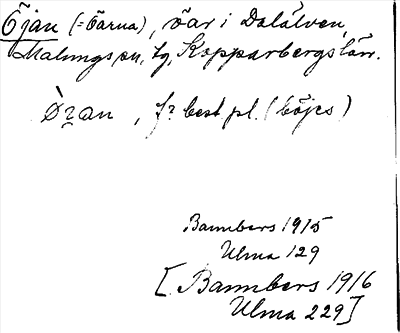 Öjan (=Öarna), öar i Dalälven,
Malungs sn, Kopparbergs län.
Òʒan, best pl. (böjes)
Bannbers 1915
Ulma 129
[Bannbers 1916
Ulma 229]